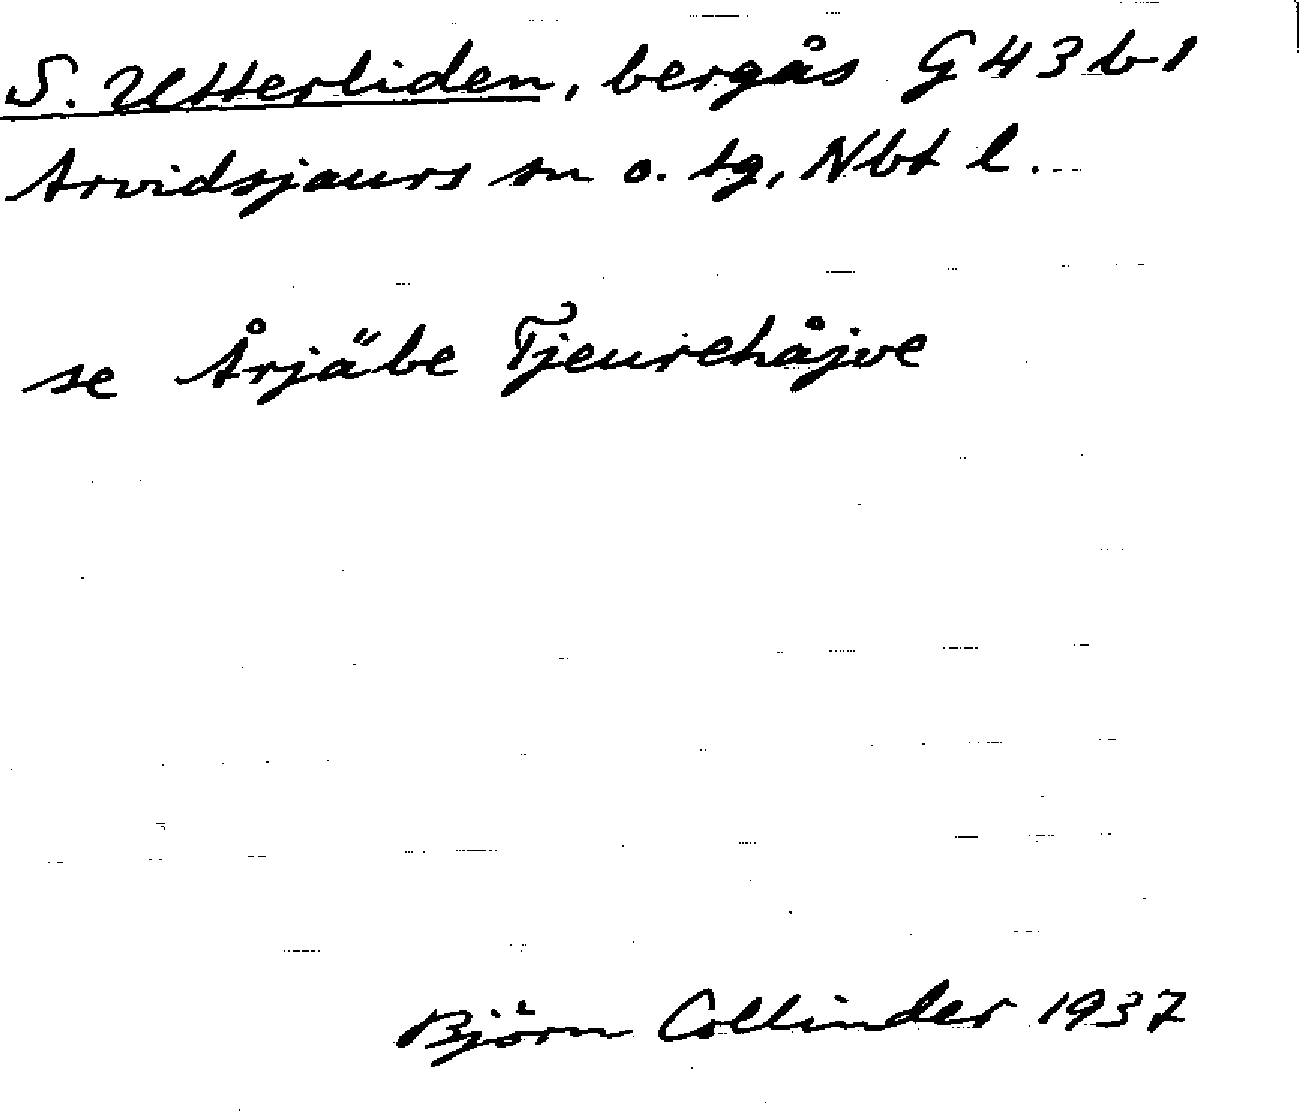 S. Utterliden, bergås G 43 b 1
Arvidsjaurs sn o. tg, Nbt l.
se Årjäbe Tjeurehåjve
Björn Collinder 1937